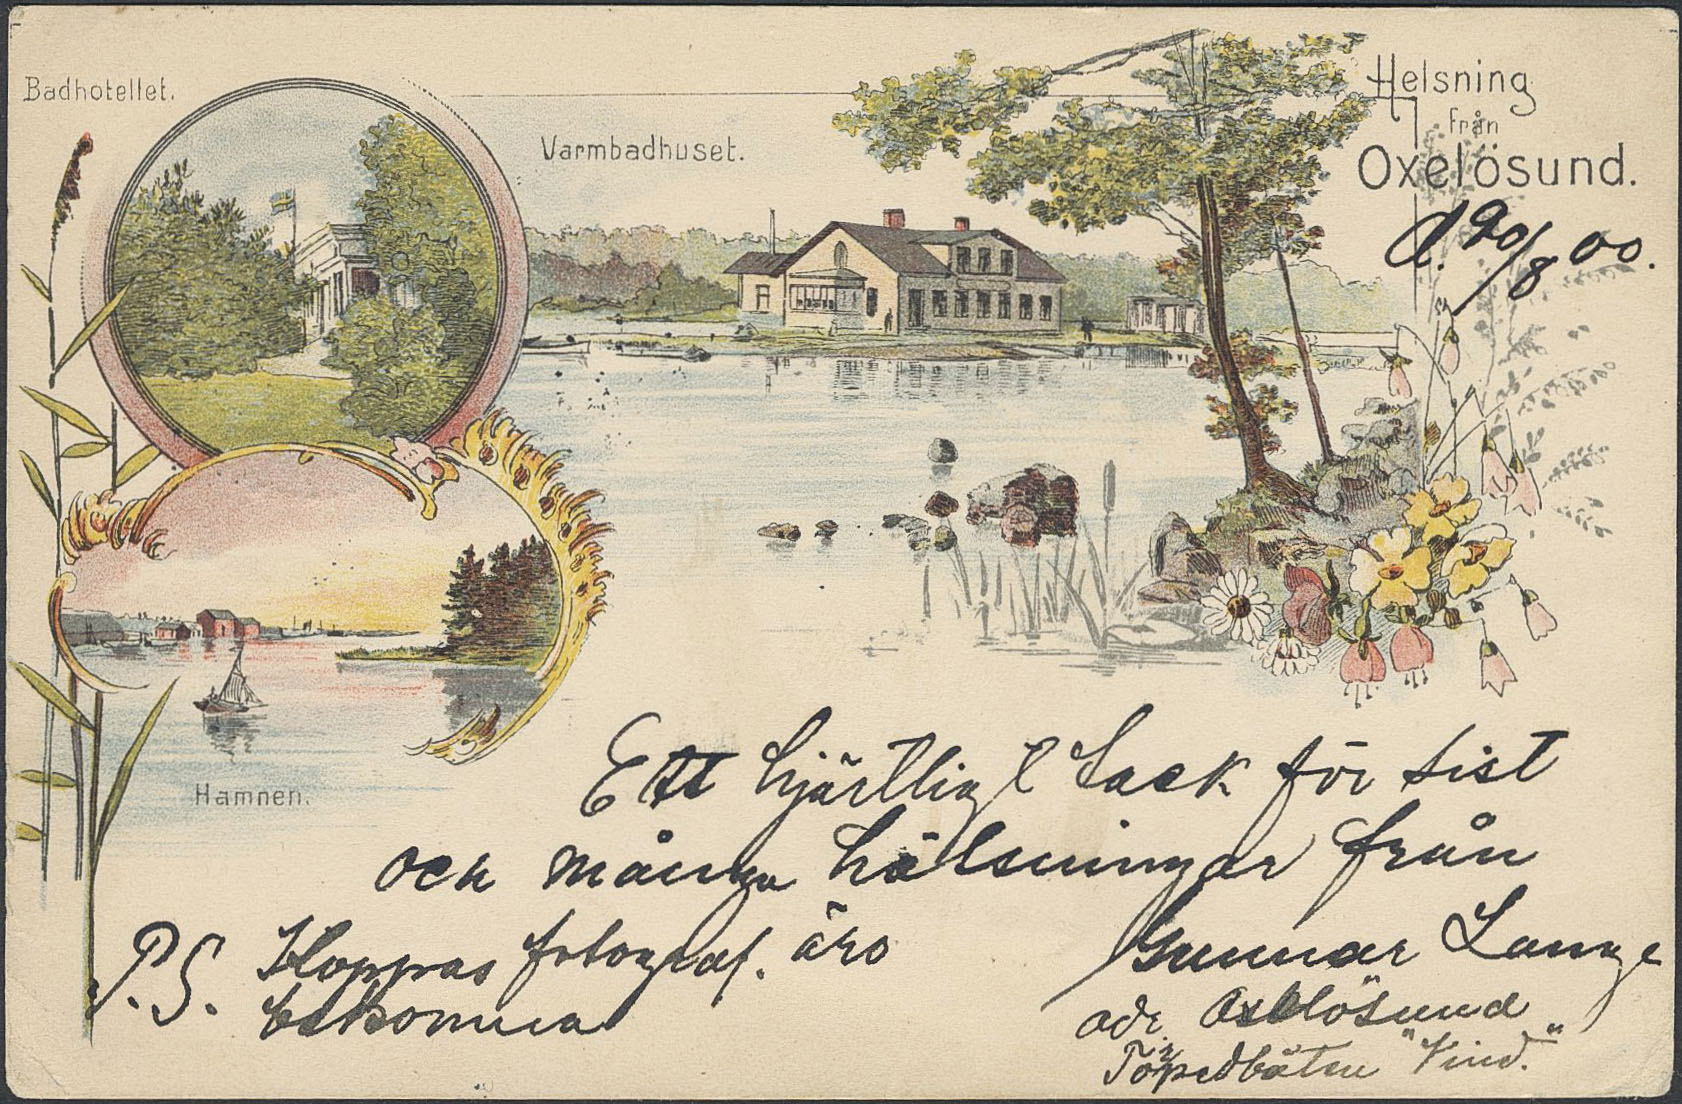 Badhotellet.
Varmbadhuset.
Helsning
från
Oxelösund.
d. 20/8 00.
Hamnen.
Ett hjärtligt tack för sist
och många hälsningar från
Gunnar Lange
adr. Oxelösund
Torpedbåten "Vind."
P.S. Hoppas fotograf. äro